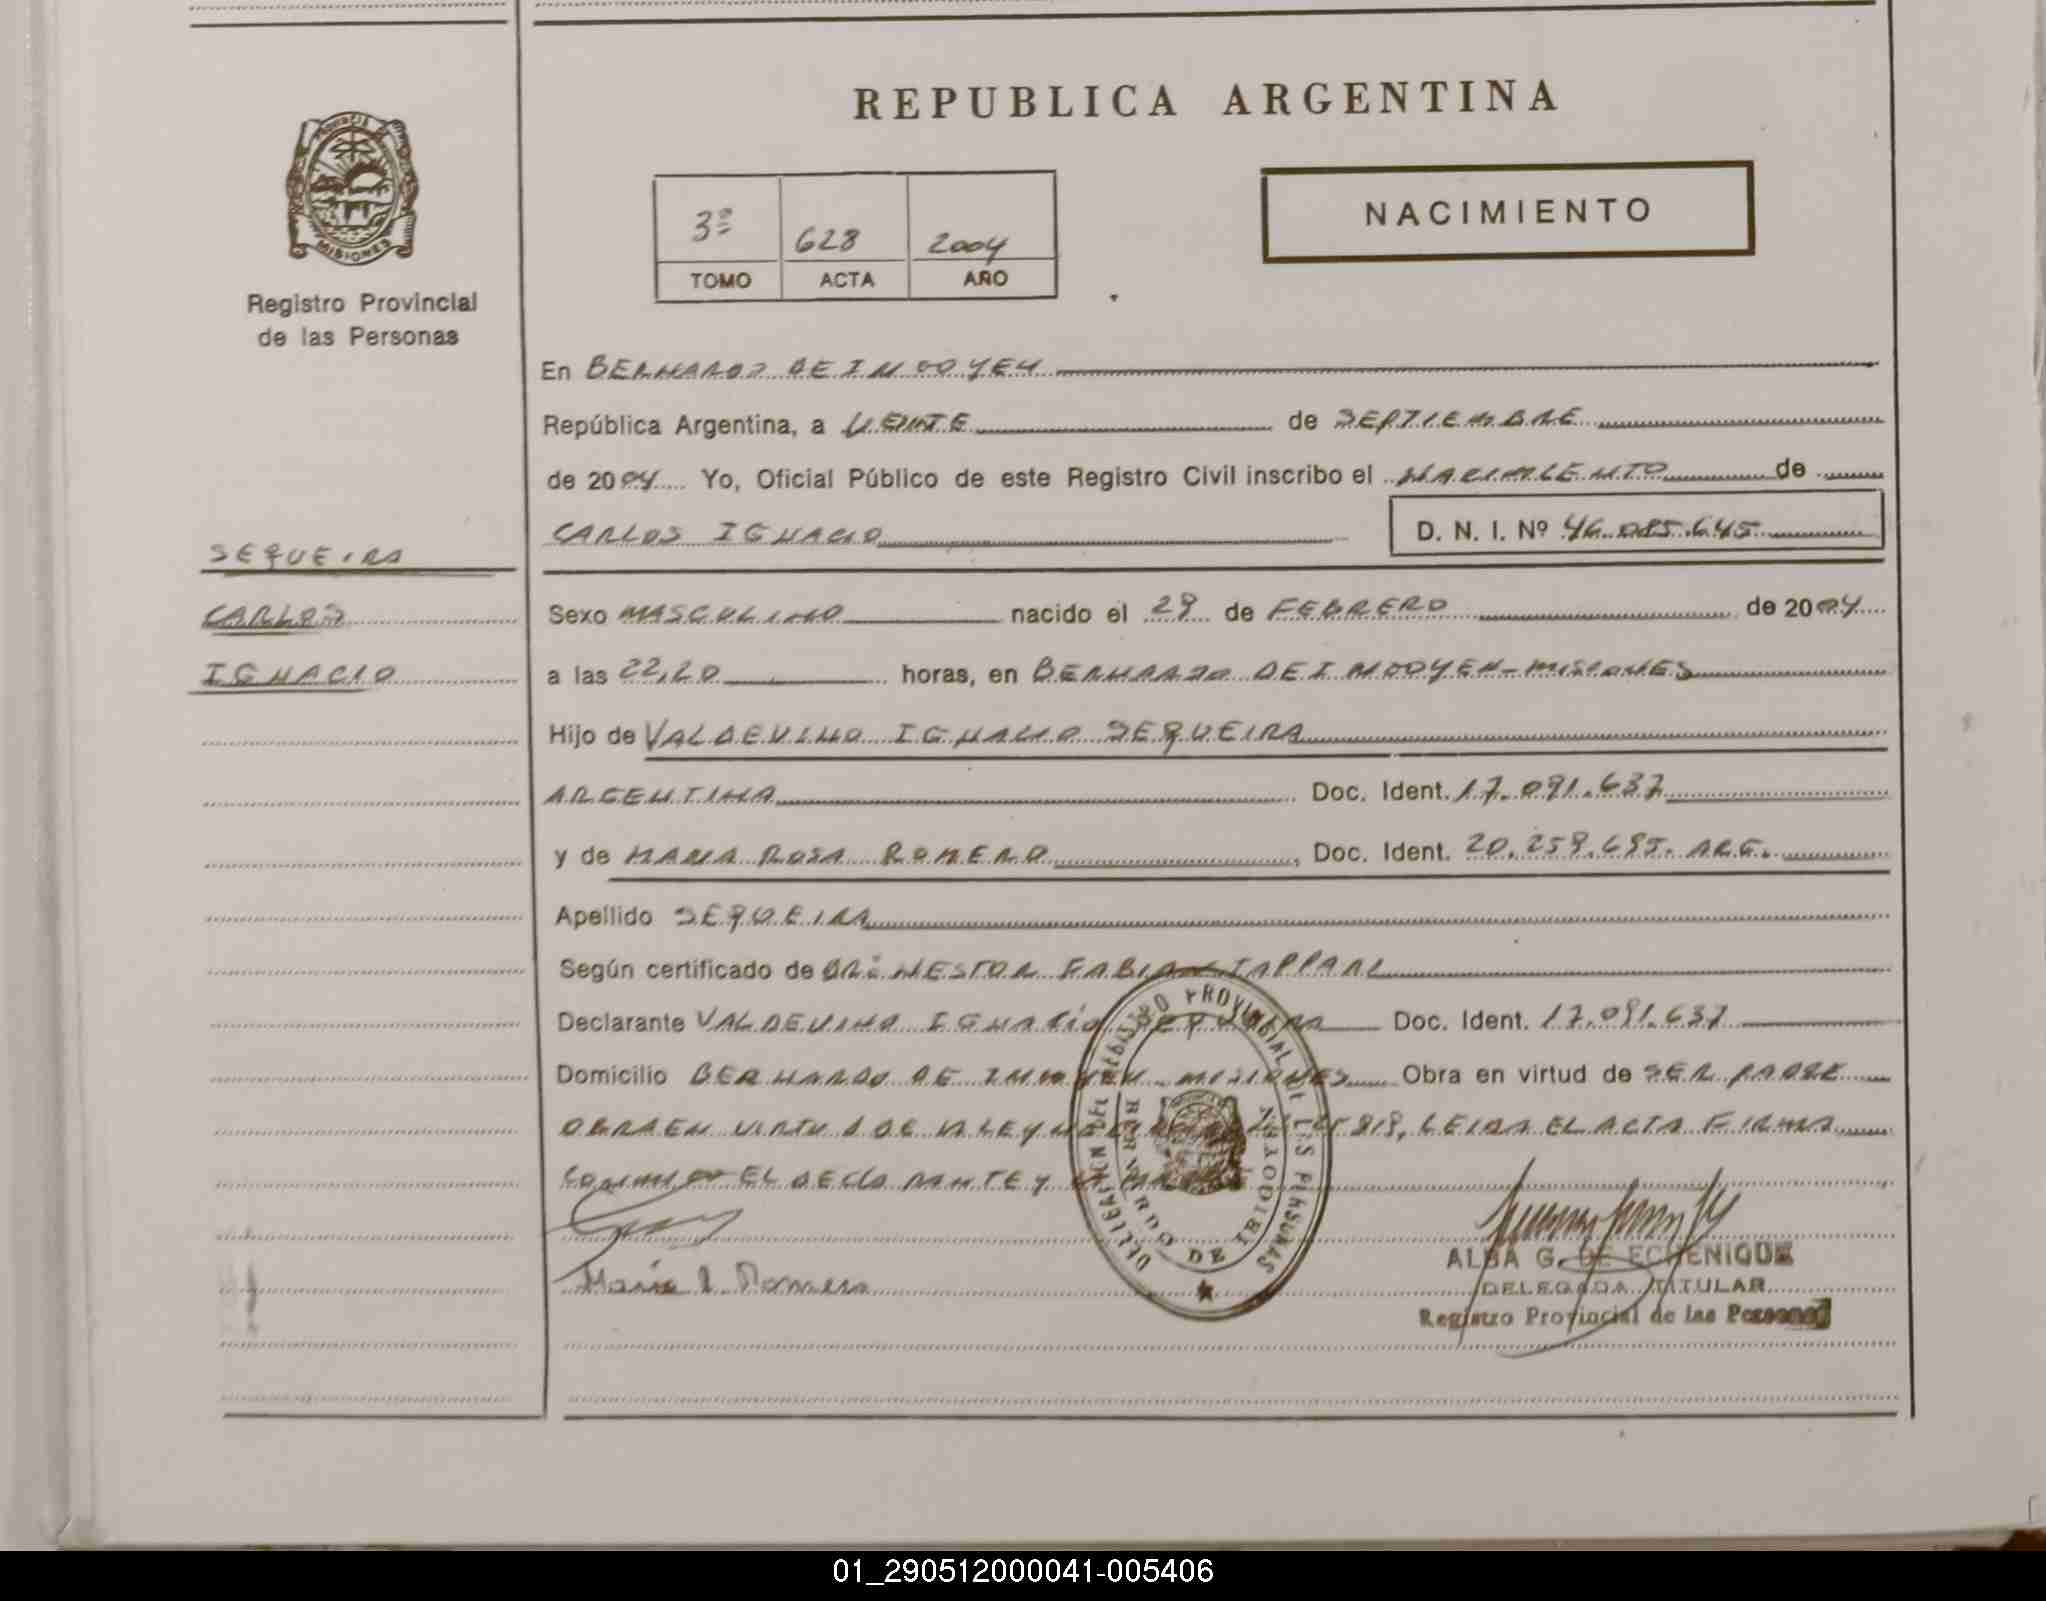 REPUBLICA ARGENTINA
PROVINCIA
MISIONES
Registro Provincial
de las Personas
3º 628 2004
TOMO ACTA AÑO
NACIMIENTO
En BERNARDO DE IRIGOYEN
República Argentina, a VEINTE de SEPTIEMBRE
de 2004 Yo, Oficial Público de este Registro Civil inscribo el NACIMIENTO de
CARLOS IGNACIO D. N. I. Nº 46.085.645
SEQUEIRA
CARLOS
IGNACIO
Sexo MASCULINO nacido el 29 de FEBRERO de 2004
a las 22,20 horas, en BERNARDO DE IRIGOYEN - MISIONES
Hijo de VALDEVINO IGNACIO SEQUEIRA
ARGENTINA Doc. Ident. 17.091.637
y de MARIA ROSA ROMERO, Doc. Ident. 20.259.695. ARG.
Apellido SEQUEIRA
Según certificado de DR. NESTOR FABIAN TAPPARI
Declarante VALDEVINO IGNACIO SEQUEIRA Doc. Ident. 17.091.637
Domicilio BERNARDO DE IRIGOYEN - MISIONES Obra en virtud de SER PADRE
OBRA EN VIRTUD DE LA LEY 25.819, LEIDA EL ACTA FIRMA
CONMIGO EL DECLARANTE Y
Maria R. Romero
DELEGACION DEL REGISTRO PROVINCIAL DE LAS PERSONAS
BERNARDO DE IRIGOYEN
ALBA G. DE ECHENIQUE
DELEGADA TITULAR
Registro Provincial de las Personas
01_290512000041-005406